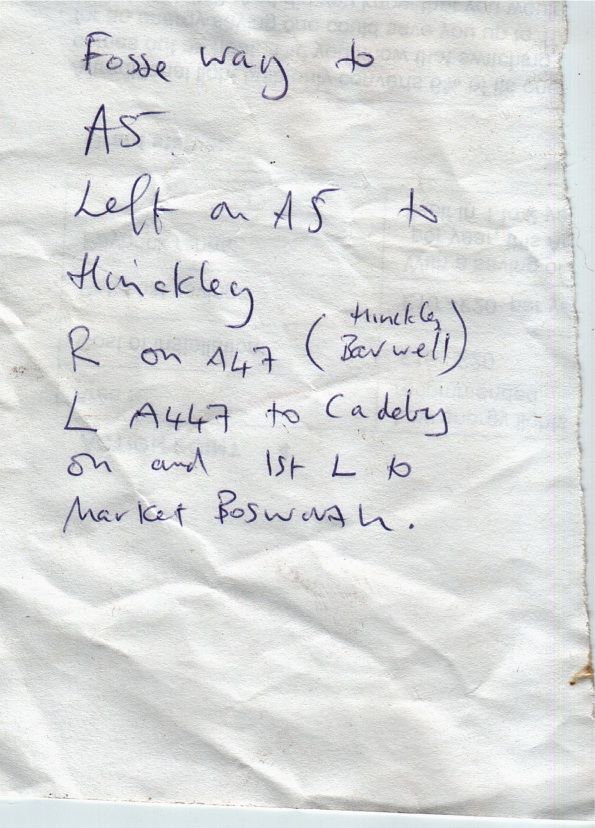 Fosse way to
A5
Left on A5 to
Hinckley
R on A47 (Hinckley
Barwell)
L A447 to Cadeby
on and 1st L to
Market Bosworth.